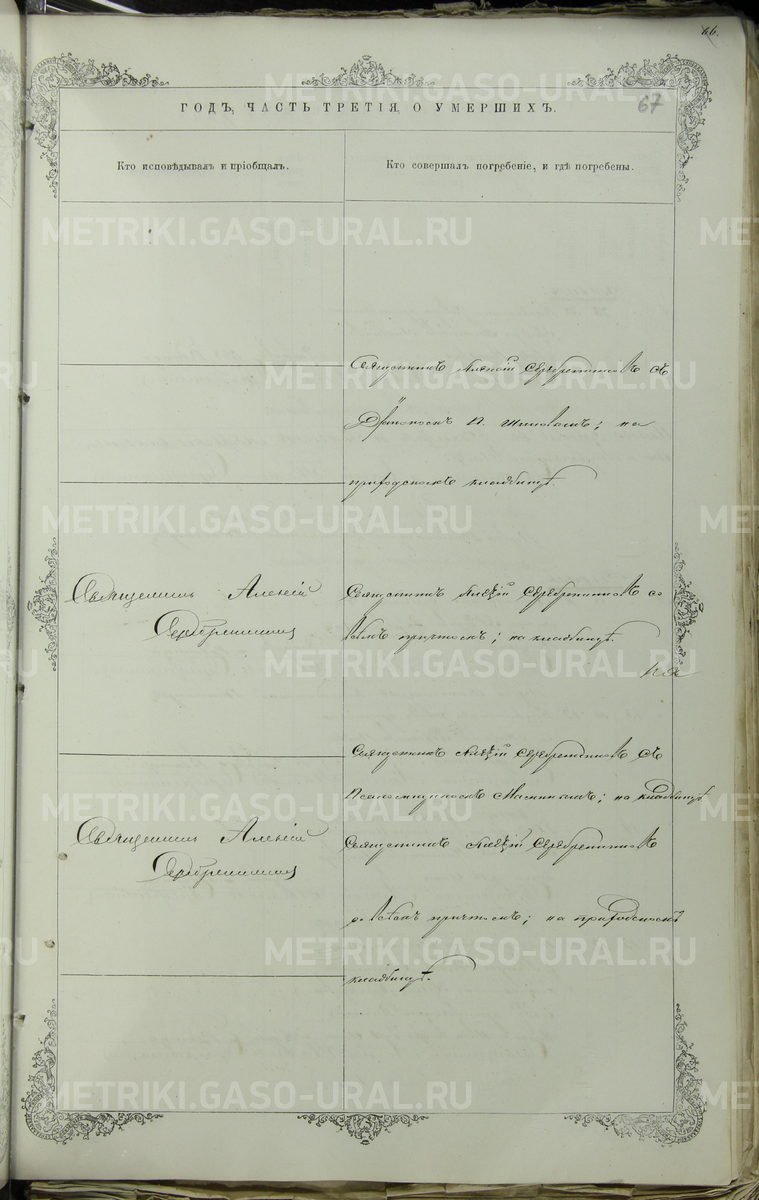 66.
67
ГОДЪ, ЧАСТЬ ТРЕТІЯ, О УМЕРШИХЪ.
Кто исповѣдывалъ и пріобщалъ.
Кто совершалъ погребеніе, и гдѣ погребены.
Священникъ Алексій Серебренниковъ съ
Діакономъ П. на
приходскомъ кладбищѣ.
Священникъ Алексій
Серебренниковъ
Священникъ Алексій Серебренниковъ со
всѣмъ причтомъ; на кладбищѣ.
Священникъ Алексій Серебренниковъ съ
Псаломщикомъ на кладбищѣ
Священникъ Алексій
Серебренниковъ
Священникъ Алексій Серебренниковъ
со всѣмъ причтомъ; на приходскомъ
кладбищѣ.
METRIKI.GASO-URAL.RU